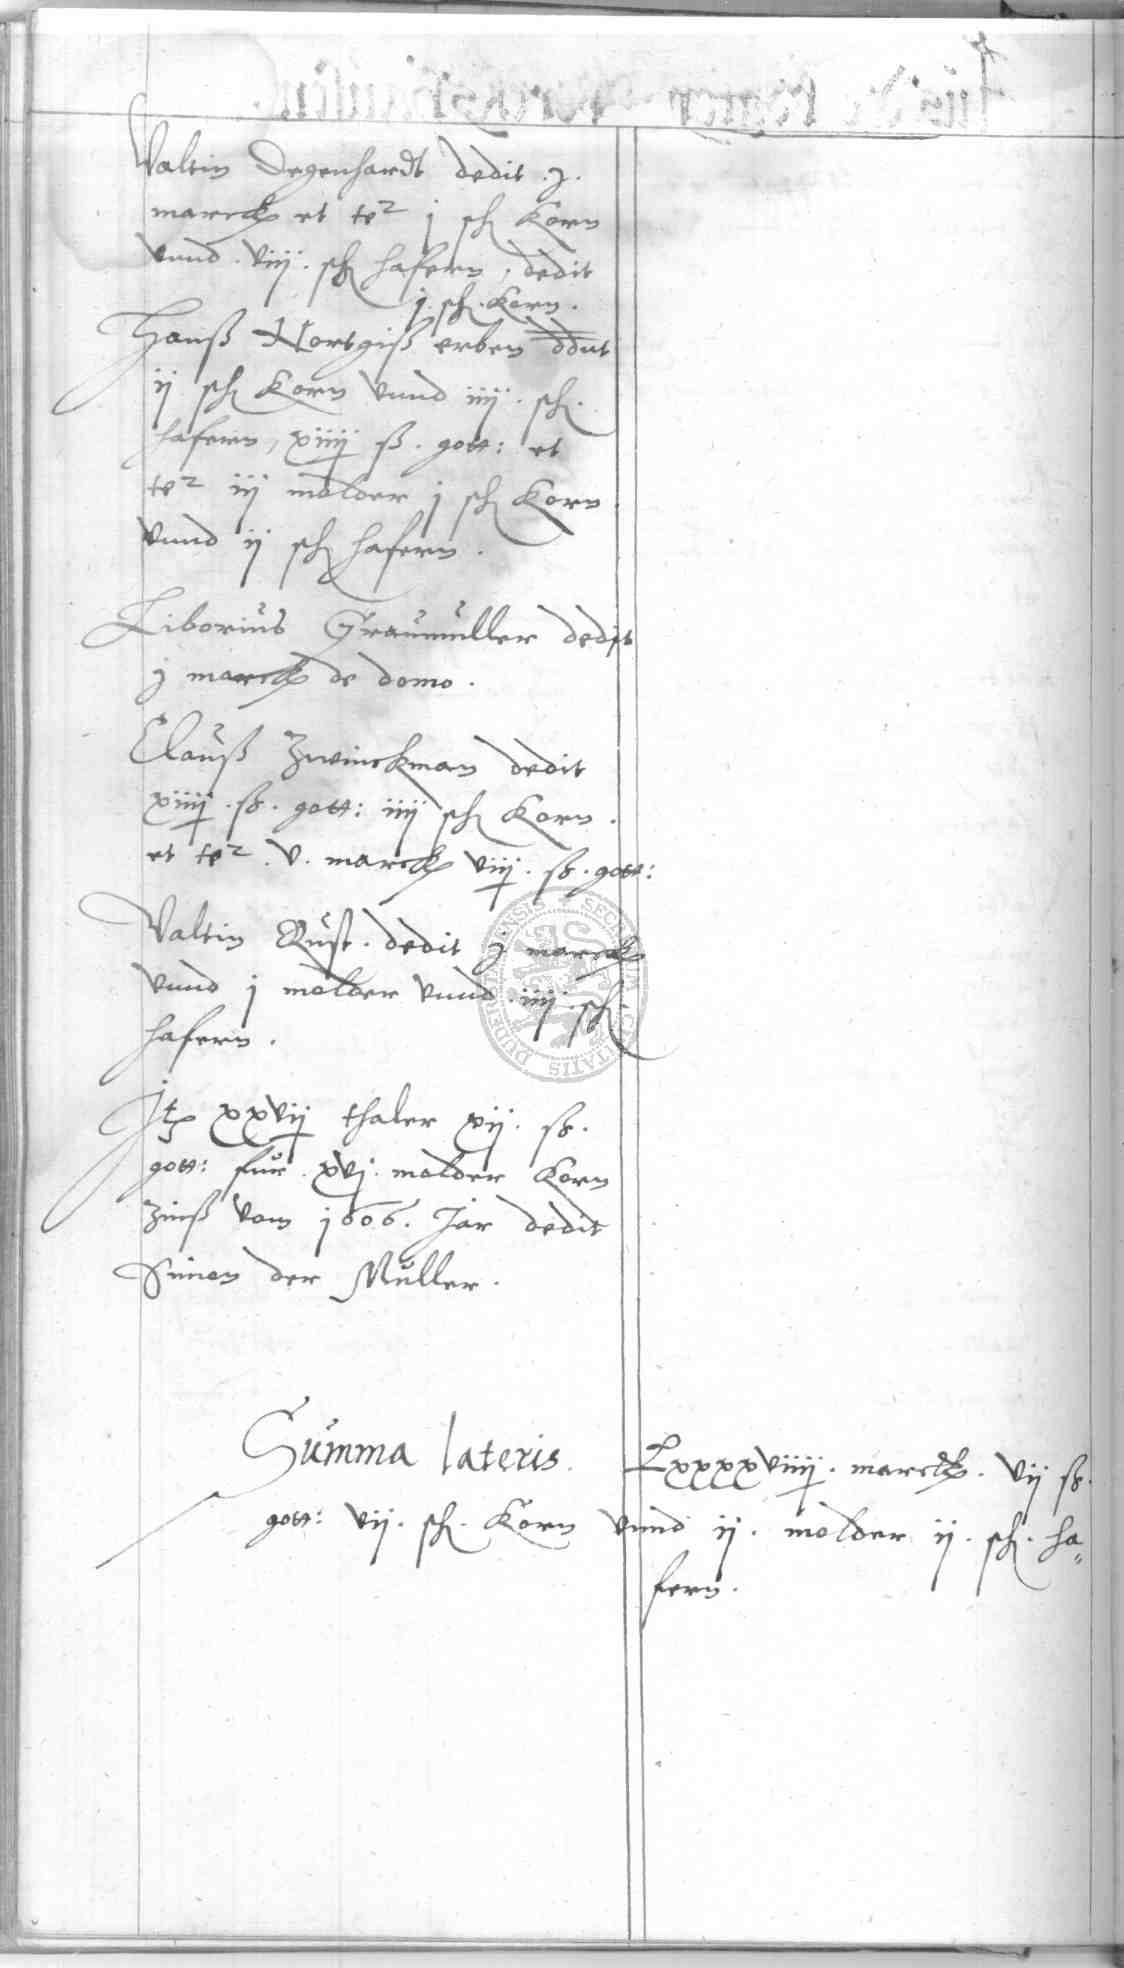 Valtin Degenhardt dedit .j.
marck et te² j sch Korn
vnnd . viij . sch hafern , dedit
j . sch . Korn .
Hanß Nortgiß erben ddnt
ij sch Korn vnnd iiij . sch .
hafern , xiiij ß . gott : et
te² iij molder j sch Korn
vnnd ij sch hafern .
Liborius Graumuller dedit
j marck de domo .
Clauß Zwinckman dedit
xiiij . ß . gott : iiij sch Korn .
et te² . v . marck viij . ß . gott :
Valtin Rust . dedit j marck
vnnd j molder vnnd . iiij . sch .
hafern .
Jtz xxvij thaler xij . ß .
gott : fur . xvj . molder Korn
Zinß vom 1606 . Jar dedit
Simon der Müller .
Summa lateris . Lxxxxviiij . marck . vij ß .
gott : vij . sch . Korn vnnd ij . molder ij . sch . ha„
fern .